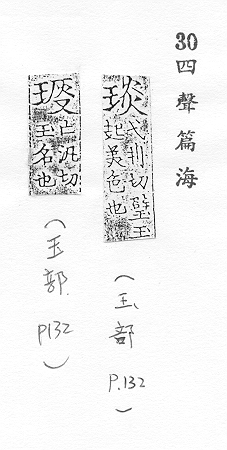 30 四聲篇海
琰
弋刋切璧玉
起美色也
(玉部 P.132)
亡汎切
玉名也
(玉部 P132)